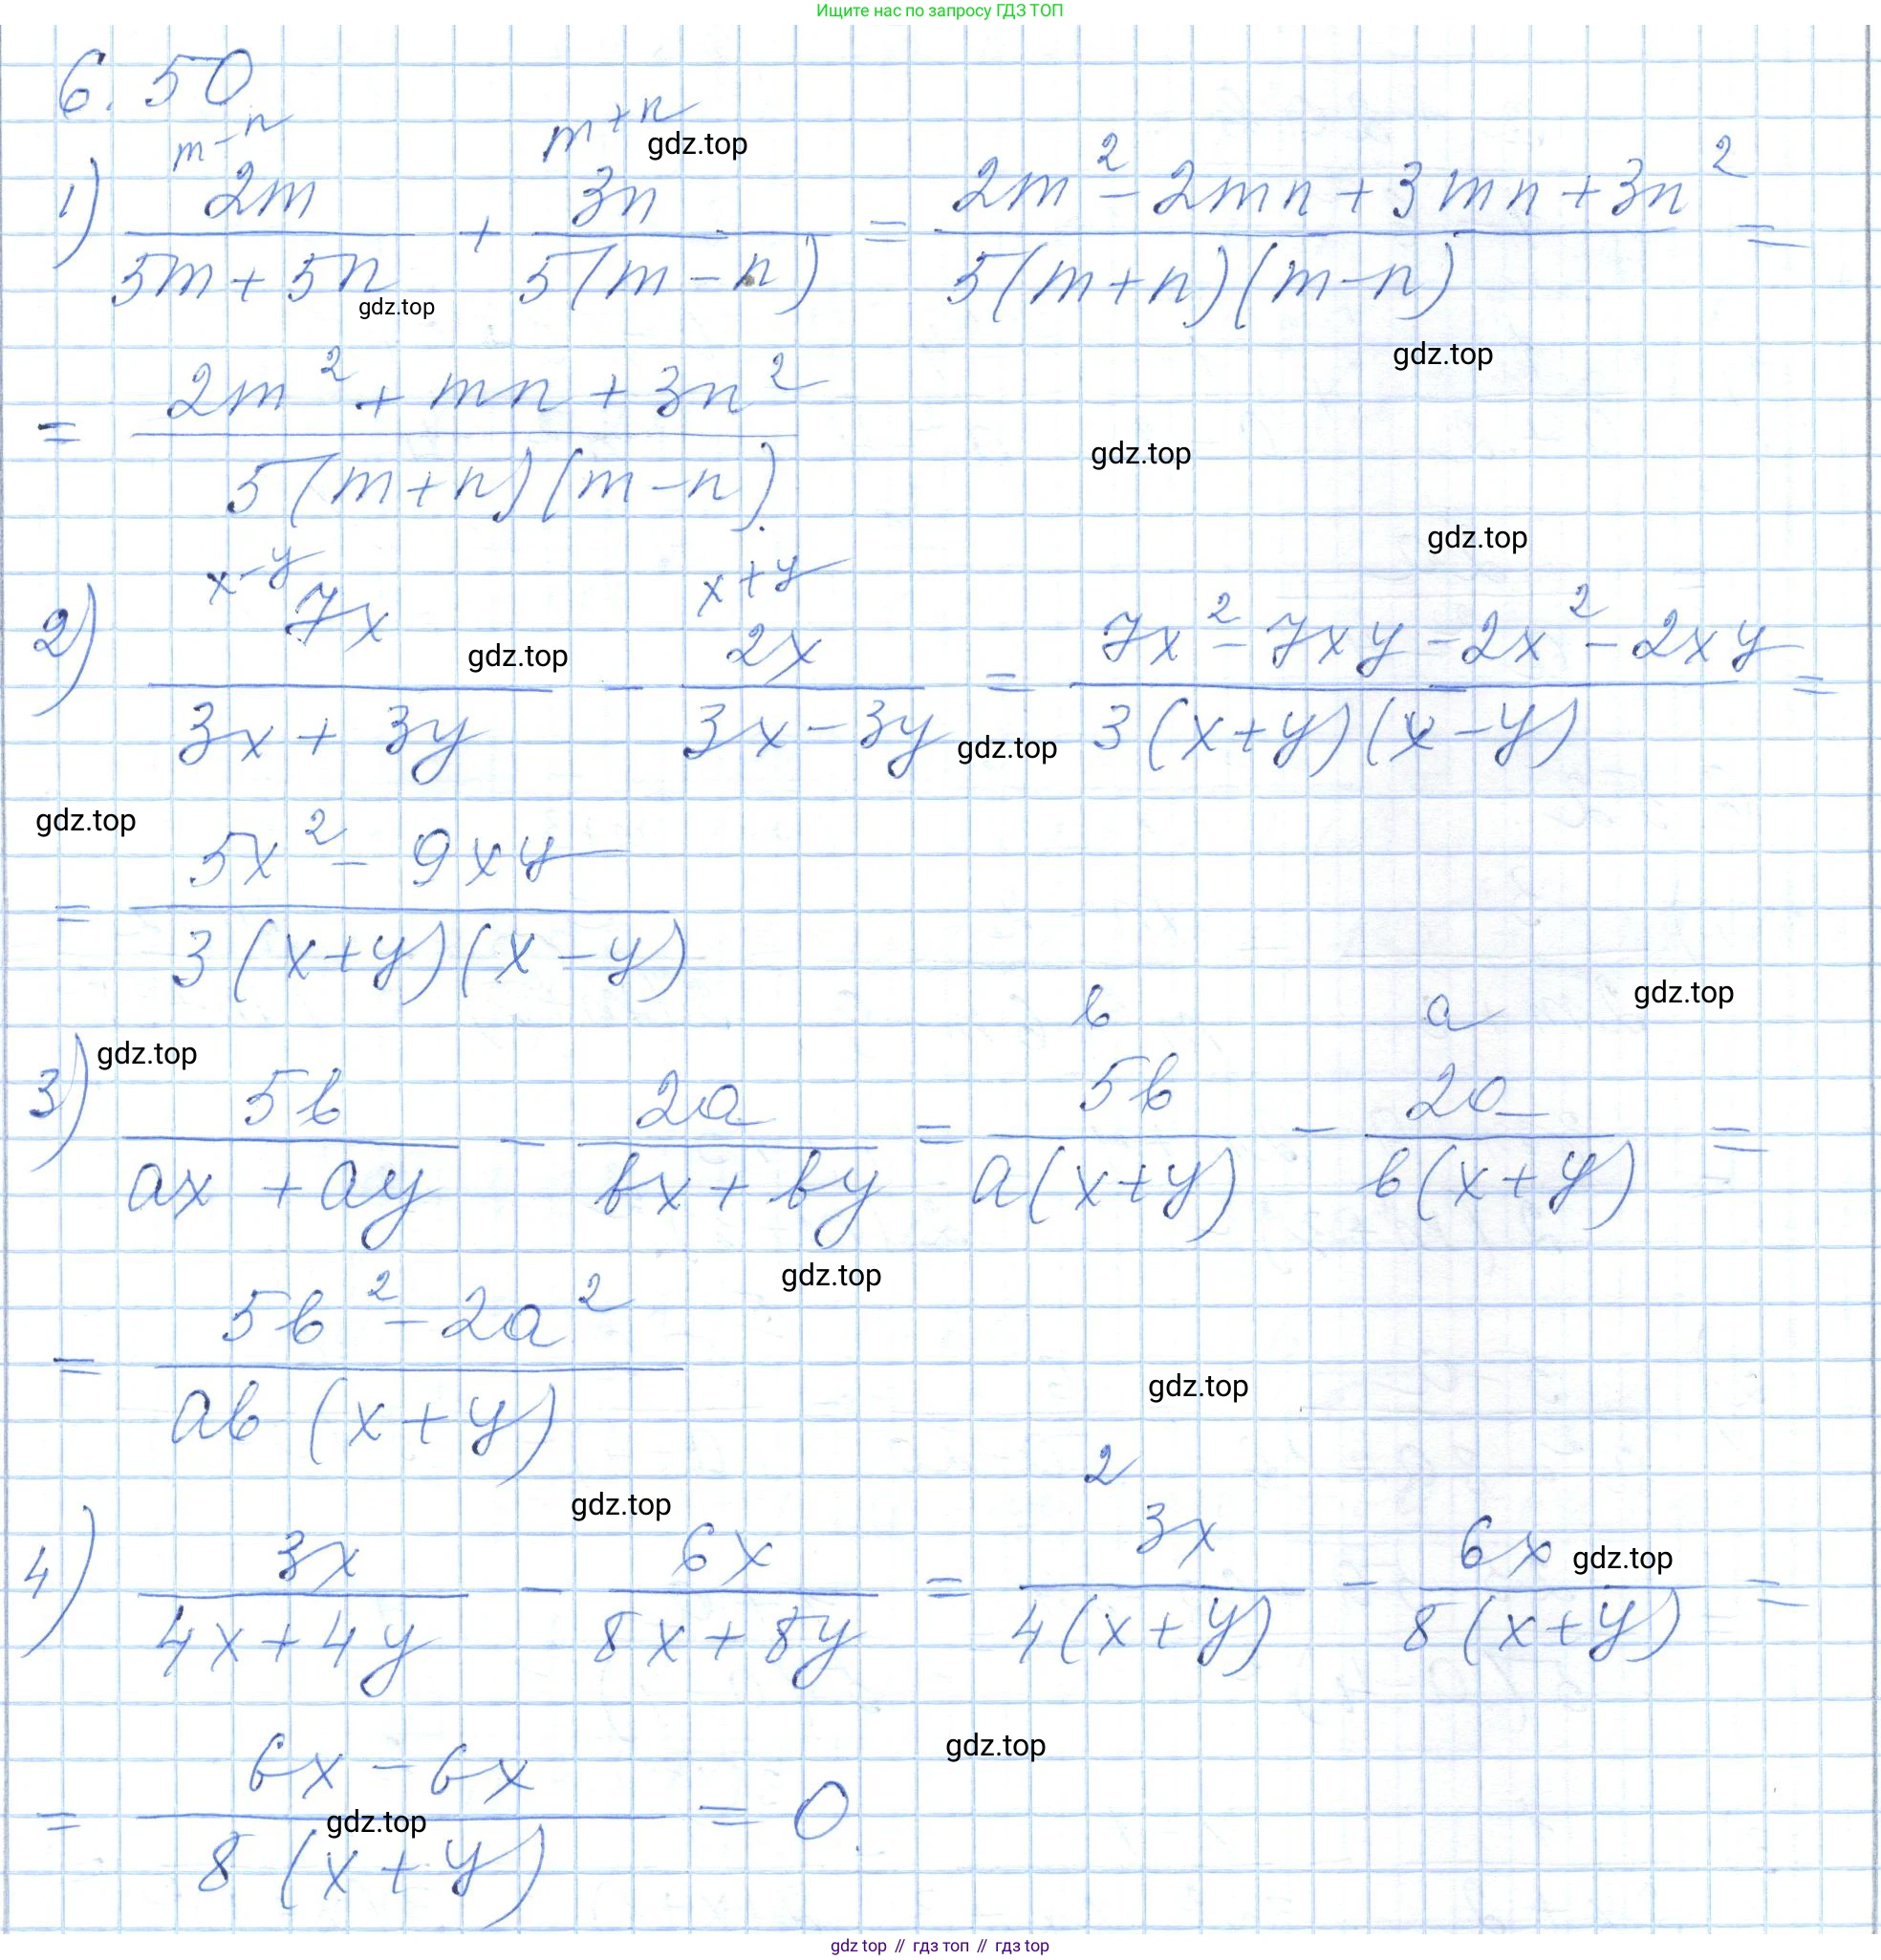 Ищите нас по запросу ГДЗ ТОП
6.50
m-n m+n gdz.top
1) 2m/(5m+5n) + 3n/(5(m-n)) = (2m²-2mn+3mn+3n²)/(5(m+n)(m-n)) =
gdz.top
gdz.top
= (2m²+mn+3n²)/(5(m+n)(m-n)).
gdz.top
gdz.top
x-y x+y
2) 7x/(3x+3y) - 2x/(3x-3y) = (7x²-7xy-2x²-2xy)/(3(x+y)(x-y)) =
gdz.top
gdz.top
gdz.top
= (5x²-9xy)/(3(x+y)(x-y))
gdz.top
b a
gdz.top
3) 5b/(ax+ay) - 2a/(bx+by) = 5b/(a(x+y)) - 2a/(b(x+y)) =
gdz.top
= (5b²-2a²)/(ab(x+y))
gdz.top
2
gdz.top
4) 3x/(4x+4y) - 6x/(8x+8y) = 3x/(4(x+y)) - 6x/(8(x+y)) =
gdz.top
gdz.top
= (6x-6x)/(8(x+y)) = 0.
gdz.top
gdz top // гдз топ // гдз top